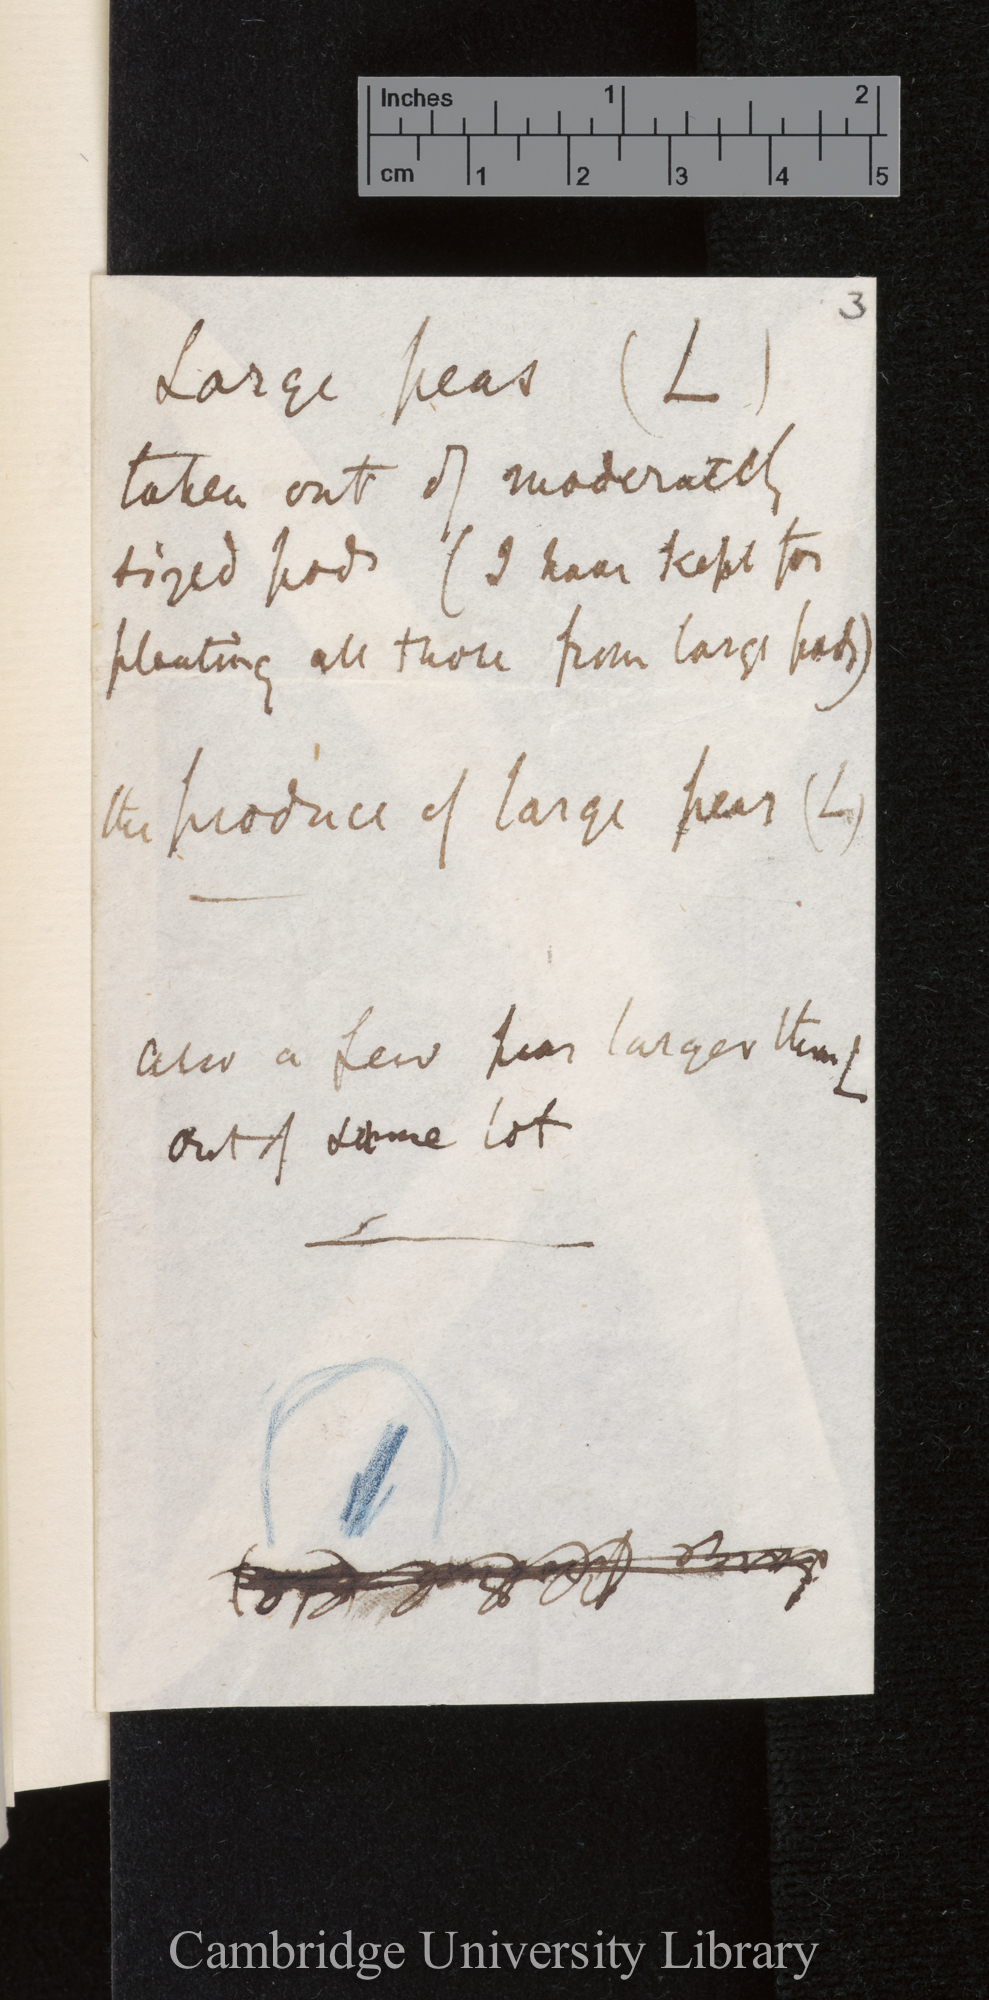 Inches 1 2
cm 1 2 3 4 5
3
Large peas (L)
taken out of moderately
sized pods (I have kept for
planting all those from large pods)
the produce of large peas (L)
also a few peas larger than L
out of same lot
Large
Cambridge University Library